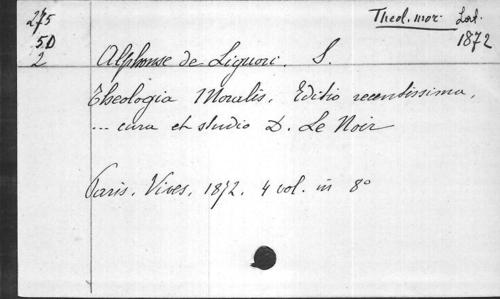 275
5D
2
Theol. mor. Lat.
1872
Alphonse de Liguori. S.
Theologia Moralis. Editio recentissima,
... cura et studio D. Le Noir
Paris. Vives. 1872. 4 vol. in 8°